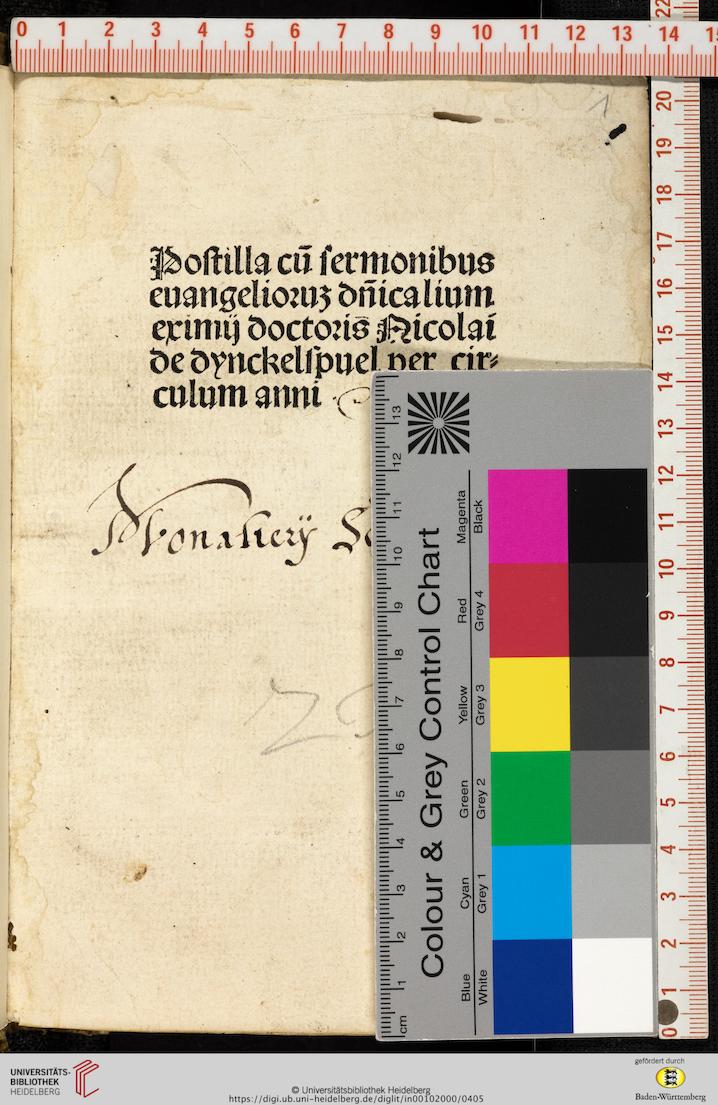 0 1 2 3 4 5 6 7 8 9 10 11 12 13 14
22
20
19
18
17
16
15
14
13
12
11
10
9
8
7
6
5
4
3
2
1
0
1
Poſtilla cū ſermonibus
euangelioruꝫ dn̄icalium
eximij doctoris Nicolai
de dynckelſpuel per cir⸗
culum anni
Monasterij
Colour & Grey Control Chart
Magenta
Black
Red
Grey 4
Yellow
Grey 3
Green
Grey 2
Cyan
Grey 1
Blue
White
13
12
11
10
9
8
7
6
5
4
3
2
1
cm
UNIVERSITÄTS-
BIBLIOTHEK
HEIDELBERG
© Universitätsbibliothek Heidelberg
https://digi.ub.uni-heidelberg.de/diglit/in00102000/0405
gefördert durch
Baden-Württemberg